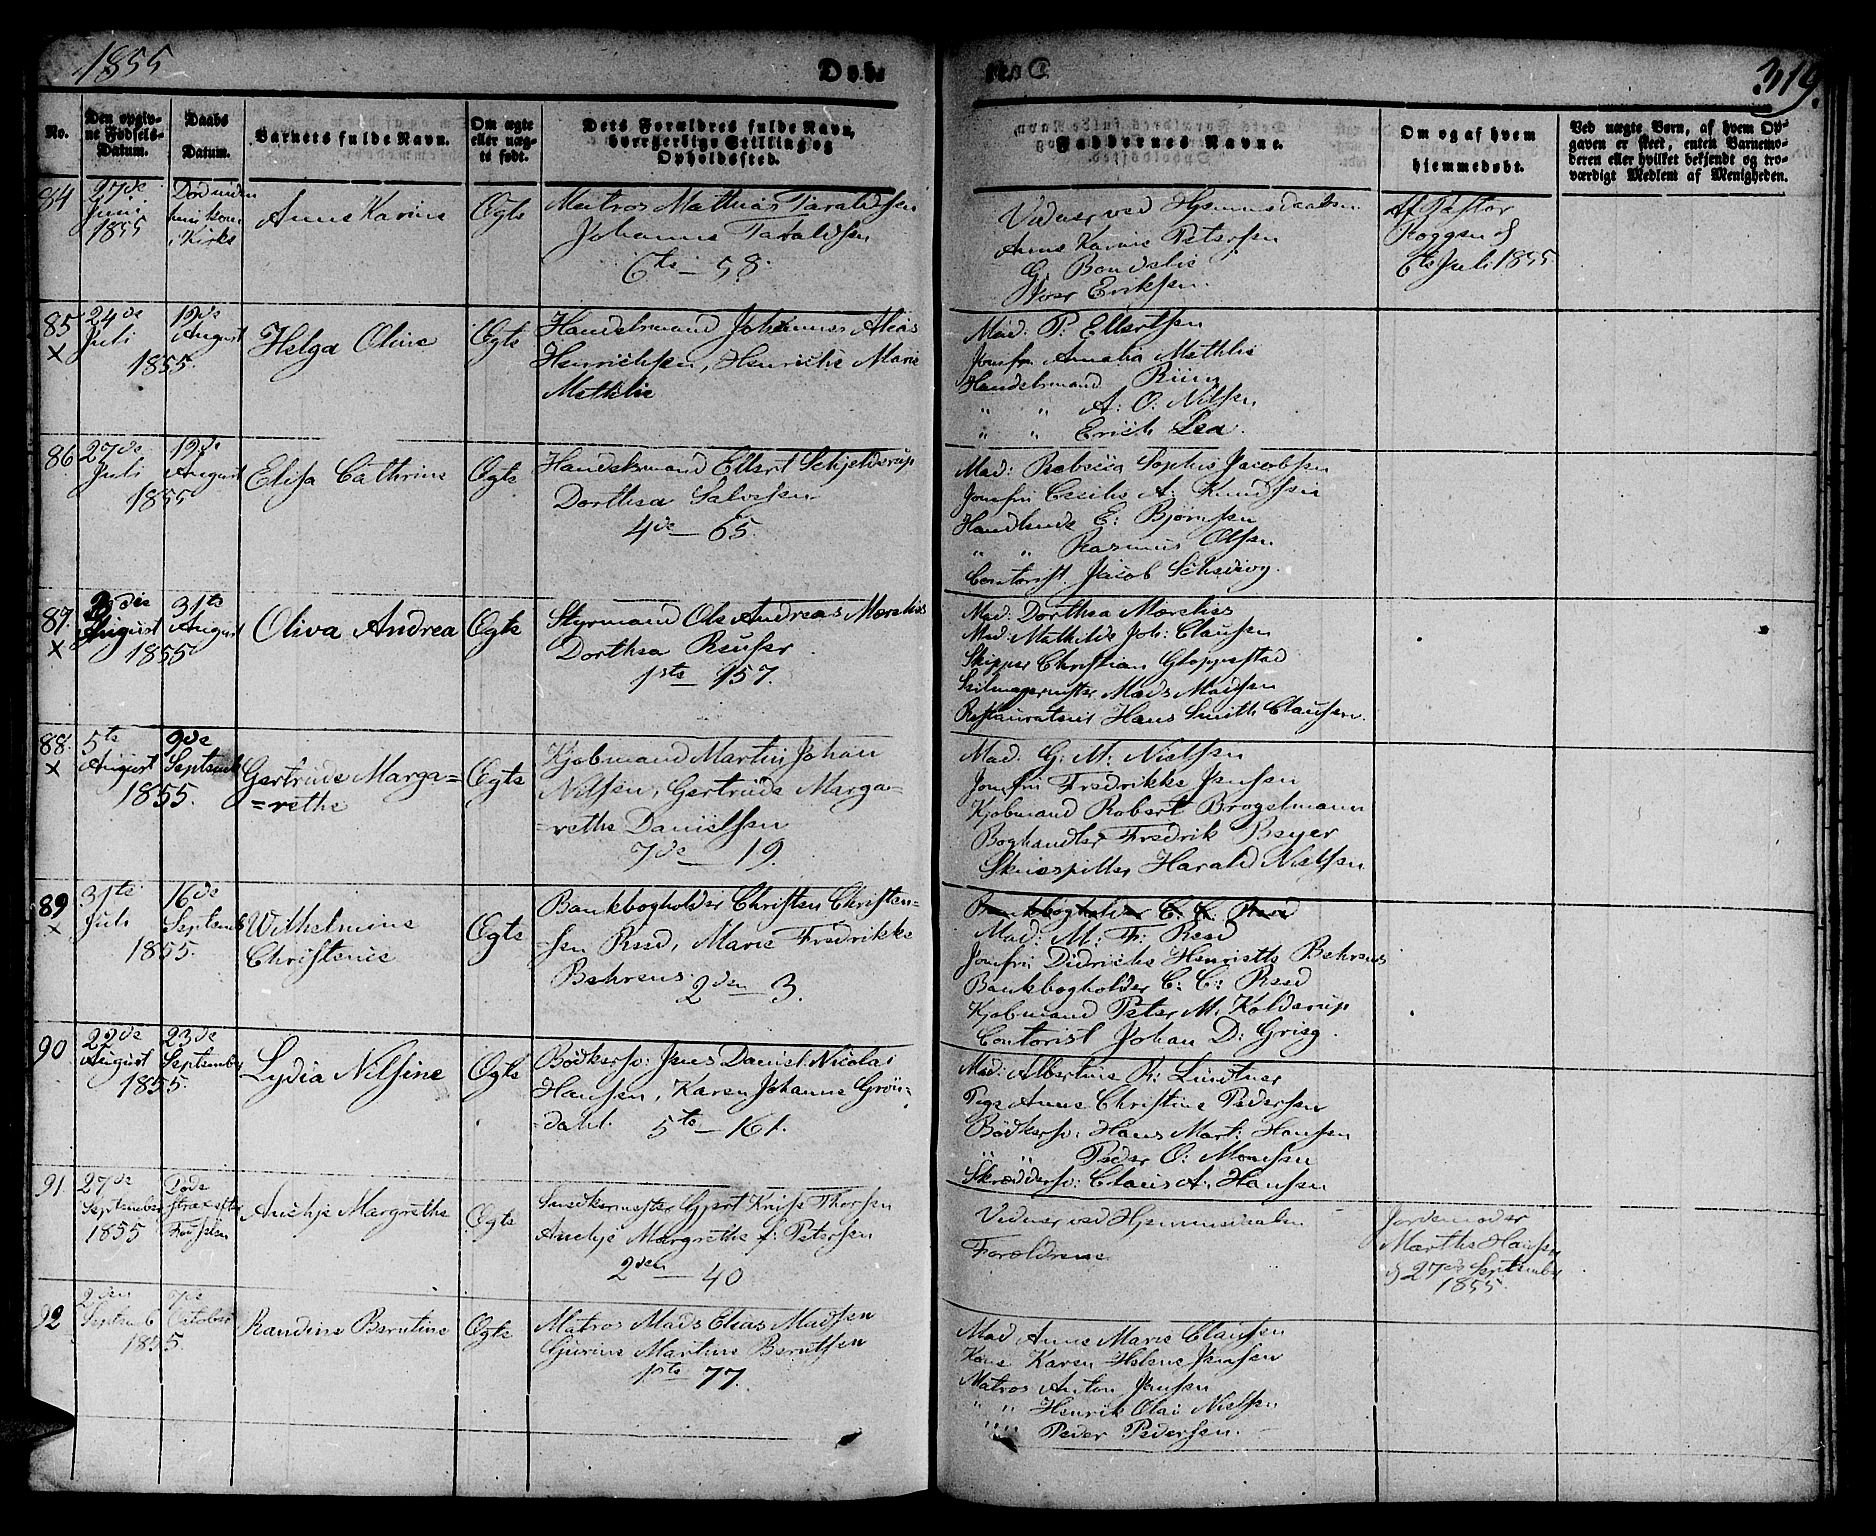 1855
Døb-
319.
No.
Den opgiv-
ne Fødsels-
Datum.
Daabs
Datum.
Barnets fulde Navn.
Om ægte
eller uæg-
te født.
Dets Forældres fulde Navn,
borgerlige Stilling og
Opholdssted.
Faddernes Navne.
Om og af hvem
hjemmedøbt.
Ved uægte Børn, af hvem Op-
gaven er skeet, enten Barnemo-
deren eller hvilket bekjendt og tro-
værdigt Medlem af Menigheden.
84
27de
Juni
1855
Død inden
ankom
i Kirke
Anne Karine
Ægte
Matros Mathias Taraldsen
Johanne Taraldsen
6te – 58.
Vidner ved Hjemmedaaben
Anne Karine Petersen
G. Bondelie
Iver Eriksen.
Af Pastor
Koggen d
6te Juli 1855
85
x
24de
Juli
12de
August
1855.
Helga Oline
Ægte
Handelsmand Johannes Alias
Henrichsen, Henriche Marie
Mathilie
Mad: P: Ellertsen
Jomfru Amalia Mathlie
Handelsmand Riing
" " A: O: Nilsen
" " Erich Lea.
86
27de
Juli
12de
August
1855
Elisa Cathrine
Ægte
Handelsmand Ellert Schjelderup
Dorthea Salvesen
4de – 65.
Mad: Rebecca Sophie Jacobsen
Jomfru Cecilie A: Knudsen
Handlende E: Bjørnsen
" " Rasmus Olsen
Contorist Jacob Schevig.
87.
x
August
31te
August
1855
Oliva Andrea
Ægte
Styrmand Ole Andreas Mørelies
Dorthea Reuser
1ste – 157.
Mad: Dorthea Mørelies
Mad: Mathilde Joh: Clausen
Skipper Christian Gloppestad
Seilmagermster Mads Madsen
Restaurateur Hans Smith Clausen.
88.
x
5te
August
9de
Septemb
1855.
Gertrude Marga=
=rethe
Ægte
Kjøbmand Martin Johan
Nilsen, Gertrude Marga=
=rethe Danielsen
7de – 19.
Mad. G: M: Nielsen
Jomfru Fredrikke Jensen
Kjøbmand Robert Brøgelmann
Boghandler Fredrik Beyer
Skuespiller Harald Nielsen
89
x
31te
Juli
16de
Septemb
1855.
Wilhelmine
Christense
Ægte
Bankbogholder Christen Christen=
=sen Reed, Marie Fredrikke
Behrens.
2den – 3.
Bankbogholder C. C. Reed
Mad: M: F: Reed
Jomfru Didriche Henriette Behrens
Bankbogholder C: C: Reed
Kjøbmand Peter M. Kolderup
Contorist Johan D: Grieg.
90
22de
August
23de
September
1855.
Lydia Nilsine
Ægte
Bødkersv: Jens Daniel Nicolai
Hansen, Karen Johanne Grøn-
=dahl.
5te – 161.
Mad: Albertine R: Lindtner
Pige Anne Christine Pedersen
Bødkersv: Hans Mart: Hansen
" " Peder O: Monsen
Skræddersv: Claus A: Hansen
91
27de
September
1855
Døde
strax efter
Fødselen
Anchje Margrethe
Ægte
Snedkermester Gjert Knife Thorsen
Anchje Margrethe f: Petersen
2den – 40
Vidner ved Hjemmedaaben
Forældrene
Jordemoder
Marthe Hansen
d 27de September
1855.
92
2den
Septemb
7de
October
1855.
Randine Berntine
Ægte
Matros Mads Elias Madsen
Gurine Martine Berntsen
1ste 77.
Mad Anne Marie Clausen
Kone Karen Helene Jensen
Matros Anton Jensen
" " Henrik Olai Nielsen
" " Peder Pedersen.